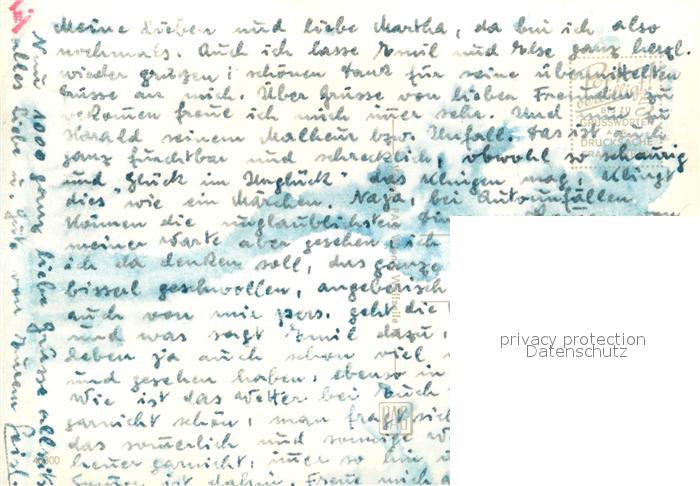 Meine Lieben und liebe Martha, da bin ich also
nochmals. Auch ich lasse Emil und Else ganz herzl.
wieder grüßen; schönen Dank für seine übermittelten
Grüsse an mich. Über Grüsse von lieben Freunden zu
bekommen freue ich mich immer sehr. Und
Harald seinem Malheur bzw. Unfall, das ist auch
ganz furchtbar und schrecklich, obwohl so schaurig
und "Glück im Unglück" das klingen mag, klingt
dies wie ein Märchen. Naja, bei Autounfällen
können die unglaublichsten
meiner Warte aber gesehen, ich
ich da denken soll, das ganze
bisserl geschwollen, angeberisch
auch von mir pers. geht die
und was sagt Emil dazu,
Leben ja auch schon viel
und gesehen haben, ebenso in
Wie ist das Wetter bei Euch
garnicht schön, man fragt sich
das sommerlich und sonnige
heuer garnicht, immer so
Sonne ist dahin. Freue mich
Nun 1000 ganz liebe Grüsse
alles Liebe u. Gute von Eurem
BIS ZU
GRUSSWORTEN
ALS
DRUCKSACHE
PAG
privacy protection
Datenschutz